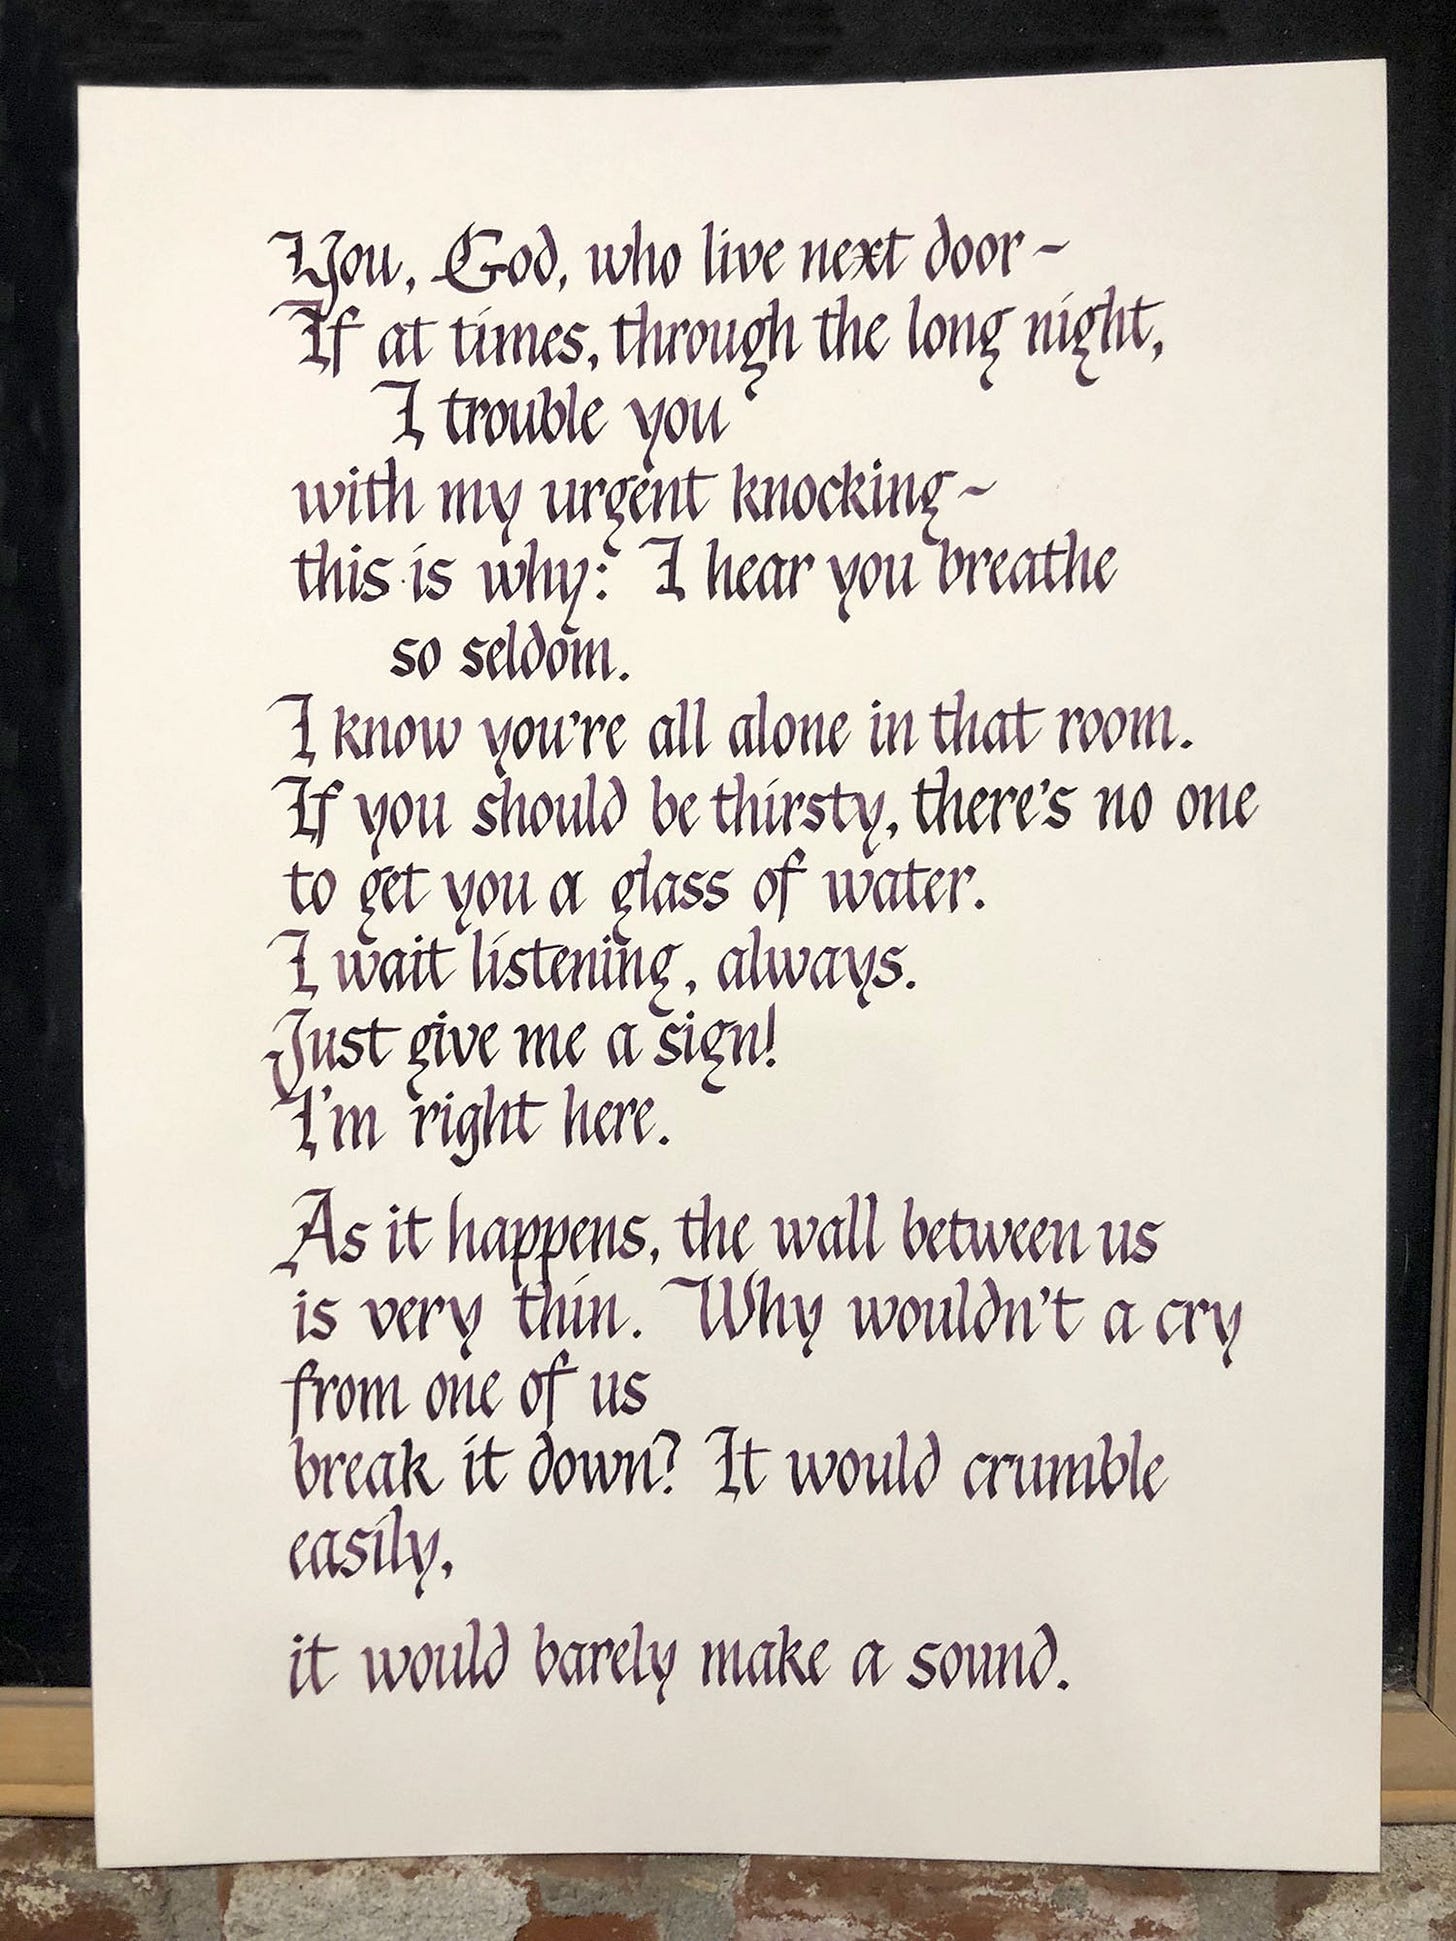 You, God, who live next door ~
If at times, through the long night,
I trouble you
with my urgent knocking ~
this is why: I hear you breathe
so seldom.
I know you're all alone in that room.
If you should be thirsty, there's no one
to get you a glass of water.
I wait listening, always.
Just give me a sign!
I'm right here.
As it happens, the wall between us
is very thin. Why wouldn't a cry
from one of us
break it down? It would crumble
easily,
it would barely make a sound.